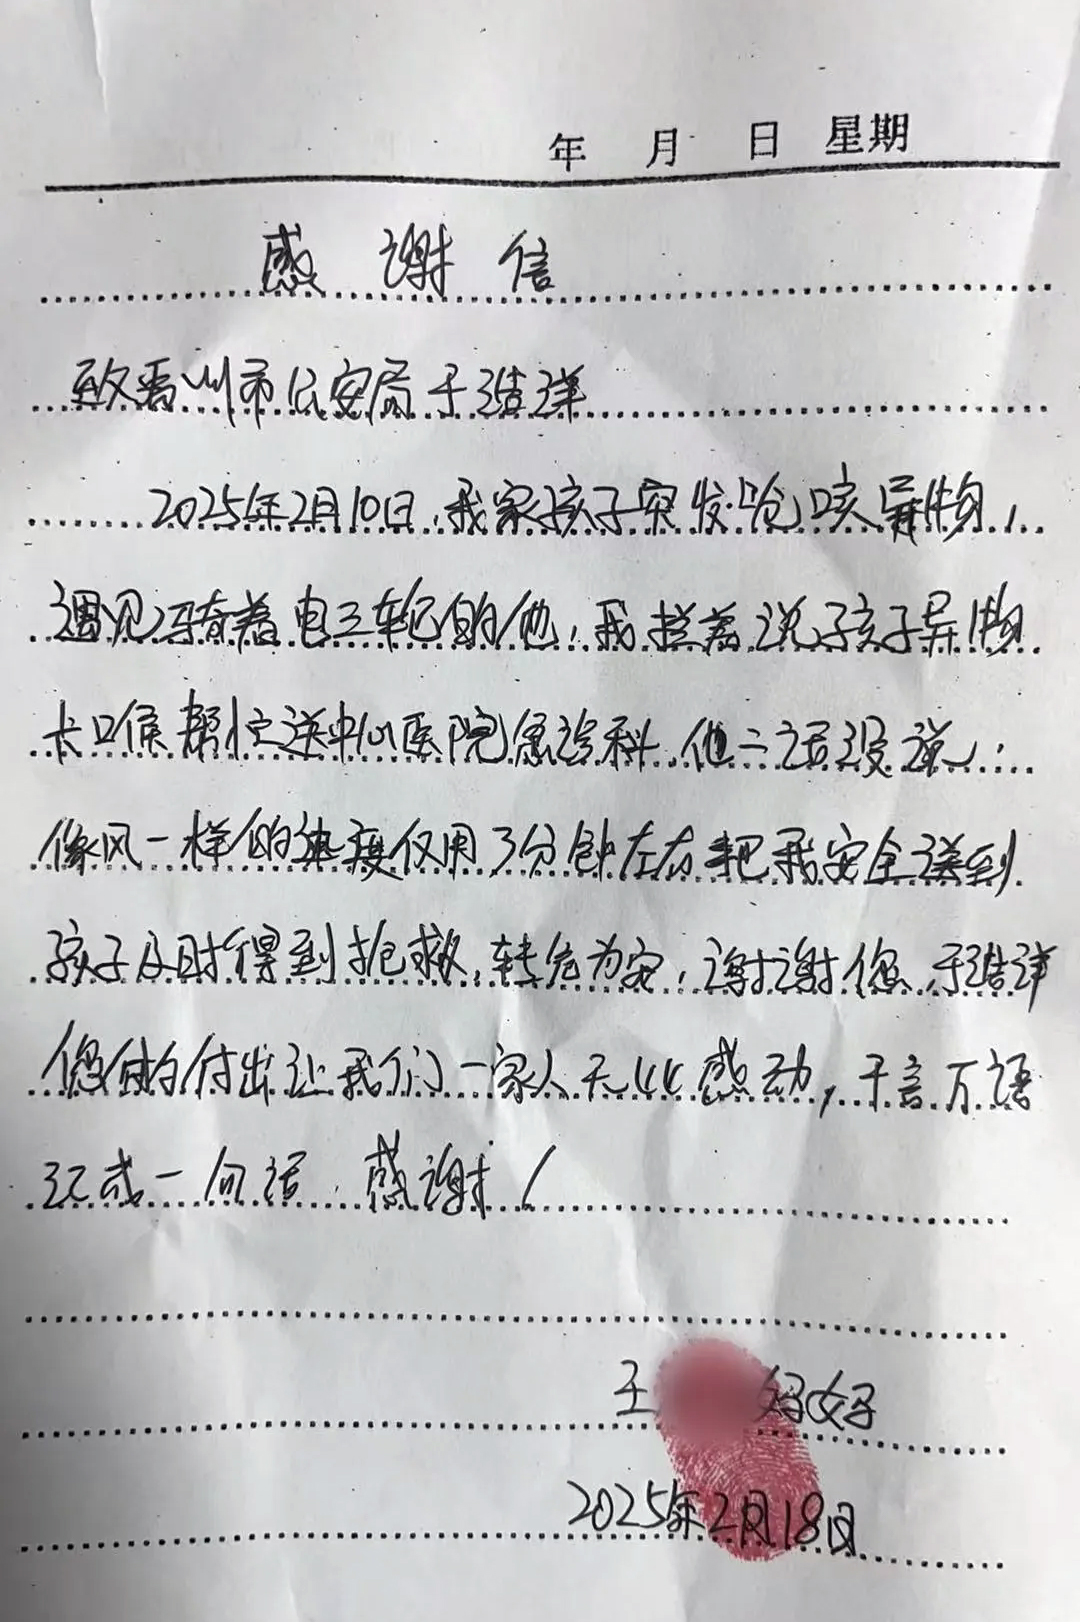 年 月 日 星期
感 谢 信
致禹州市公安局于浩洋
2025年2月10日,我家孩子突发呛咳异物,
遇见骑着电三轮的他,我拦着说孩子异物
卡口候帮忙送中心医院急诊科.他二话没说,
像风一样的速度仅用3分钟左右把我安全送到
孩子及时得到抢救,转危为安,谢谢您于浩洋
您的付出让我们一家人无比感动,千言万语
汇成一句话,感谢!
王 妈妈
2025年2月18日